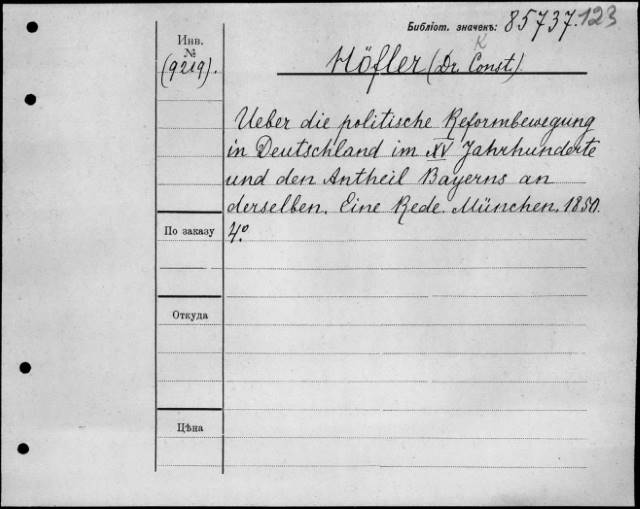 Библіот. значекъ: 85737.123
Инв.
№
(9219).
K
Höfler (Dr. Const.)
Ueber die politische Reformbewegung
in Deutschland im XV Jahrhunderte
und den Antheil Bayerns an
derselben. Eine Rede. München. 1850.
По заказу
4º
Откуда
Цѣна